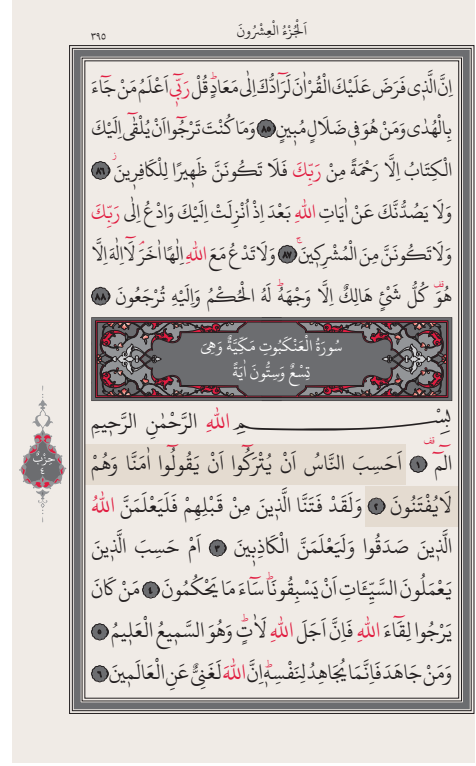 اَلْجُزْءُ الْعِشْرُونَ
٣٩٥
اِنَّ الَّذ۪ى فَرَضَ عَلَيْكَ الْقُرْاٰنَ لَرَٓادُّكَ اِلٰى مَعَادٍۜ قُلْ رَبّ۪ٓى اَعْلَمُ مَنْ جَٓاءَ
بِالْهُدٰى وَمَنْ هُوَ ف۪ى ضَلَالٍ مُب۪ينٍ ﴿٨٥﴾ وَمَا كُنْتَ تَرْجُٓوا اَنْ يُلْقٰٓى اِلَيْكَ
الْكِتَابُ اِلَّا رَحْمَةً مِنْ رَبِّكَ فَلَا تَكُونَنَّ ظَه۪يرًا لِلْكَافِر۪ينَۘ ﴿٨٦﴾
وَلَا يَصُدُّنَّكَ عَنْ اٰيَاتِ اللّٰهِ بَعْدَ اِذْ اُنْزِلَتْ اِلَيْكَ وَادْعُ اِلٰى رَبِّكَ
وَلَا تَكُونَنَّ مِنَ الْمُشْرِك۪ينَۚ ﴿٨٧﴾ وَلَا تَدْعُ مَعَ اللّٰهِ اِلٰهًا اٰخَرَۢ لَٓا اِلٰهَ اِلَّا
هُوَ۠ كُلُّ شَىْءٍ هَالِكٌ اِلَّا وَجْهَهُۜ لَهُ الْحُكْمُ وَاِلَيْهِ تُرْجَعُونَ ﴿٨٨﴾
سُورَةُ الْعَنْكَبُوتِ مَكِّيَّةٌ وَهِىَ
تِسْعٌ وَسِتُّونَ اٰيَةً
بِسْمِ اللّٰهِ الرَّحْمٰنِ الرَّح۪يمِ
الٓمٓ ﴿١﴾ اَحَسِبَ النَّاسُ اَنْ يُتْرَكُٓوا اَنْ يَقُولُٓوا اٰمَنَّا وَهُمْ
حِزْبٌ
٤
لَا يُفْتَنُونَ ﴿٢﴾ وَلَقَدْ فَتَنَّا الَّذ۪ينَ مِنْ قَبْلِهِمْ فَلَيَعْلَمَنَّ اللّٰهُ
الَّذ۪ينَ صَدَقُوا وَلَيَعْلَمَنَّ الْكَاذِب۪ينَ ﴿٣﴾ اَمْ حَسِبَ الَّذ۪ينَ
يَعْمَلُونَ السَّيِّـَٔاتِ اَنْ يَسْبِقُونَاۜ سَٓاءَ مَا يَحْكُمُونَ ﴿٤﴾ مَنْ كَانَ
يَرْجُوا لِقَٓاءَ اللّٰهِ فَاِنَّ اَجَلَ اللّٰهِ لَاٰتٍۜ وَهُوَ السَّم۪يعُ الْعَل۪يمُ ﴿٥﴾
وَمَنْ جَاهَدَ فَاِنَّمَا يُجَاهِدُ لِنَفْسِه۪ۜ اِنَّ اللّٰهَ لَغَنِىٌّ عَنِ الْعَالَم۪ينَ ﴿٦﴾